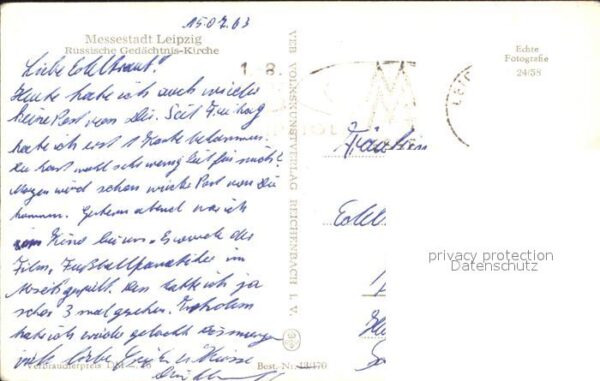 15.07.63
Messestadt Leipzig
Russische Gedächtnis-Kirche
Liebe Edeltraut!
Heute habe ich auch wieder
keine Post von Dir. Seit Freitag
habe ich erst 1 Karte bekommen.
Du hast wohl sehr wenig Zeit für mich?
Morgen wird schon wieder Post von Dir
kommen. Gestern abend war ich
im Kino bei uns. Es wurde der
Film, Fußballfanatiker im
gespielt. Den hatte ich ja
schon 3 mal gesehen. Trotzdem
habe ich wieder gelacht
viele liebe Grüße u. Küsse
Verbraucherpreis DM
Best.-Nr. 13/170
VEB VOLKSKUNSTVERLAG REICHENBACH I. V.
1 8.
MM
LEI
Echte
Fotografie
24/58
Fräulein
Edel
privacy protection
Datenschutz